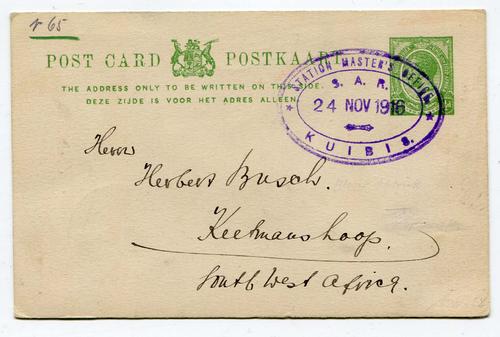 r 65
POST CARD POSTKAART
THE ADDRESS ONLY TO BE WRITTEN ON THIS SIDE.
DEZE ZIJDE IS VOOR HET ADRES ALLEEN.
STATION MASTER'S OFFICE
S. A. R.
24 NOV 1916
KUIBIS.
Herrn
Herbert Busch.
Keetmanshoop.
South West Africa.